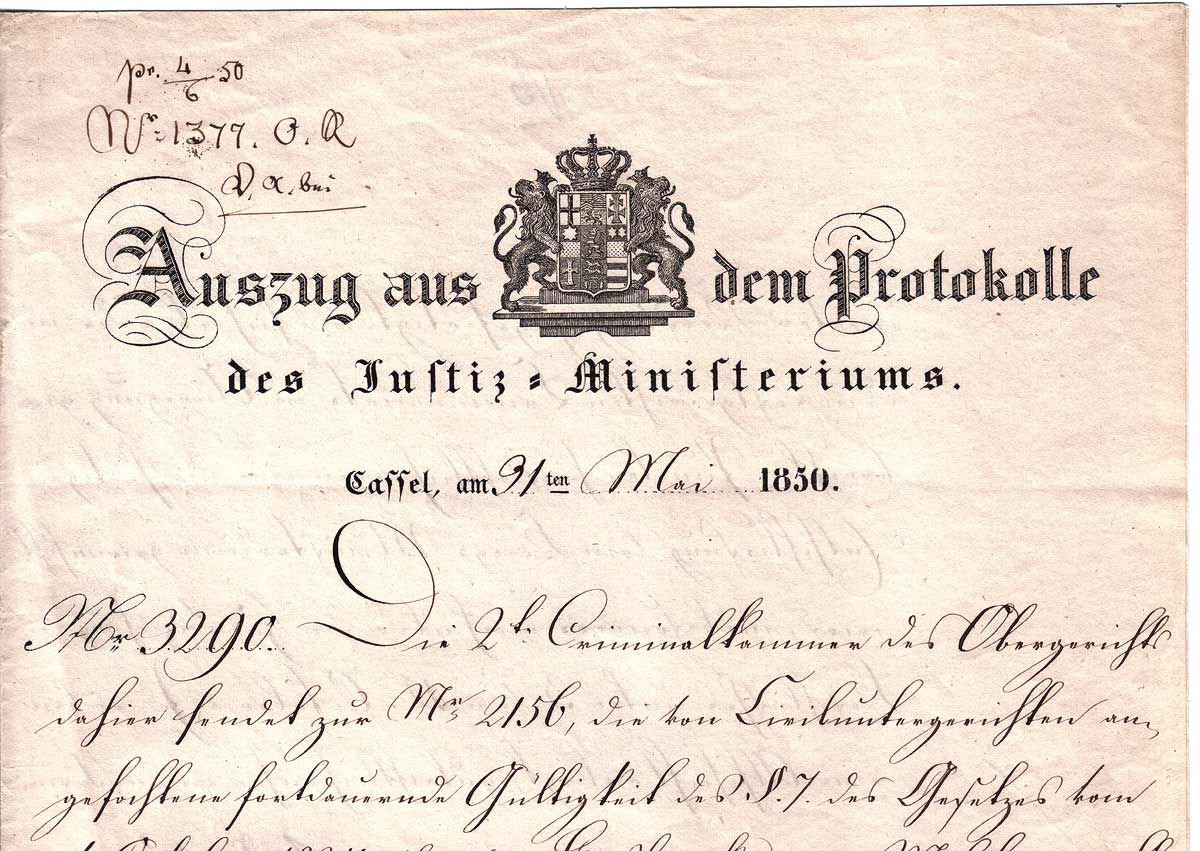 pr. 4/6 50
Nr. 1377. O. R
Auszug aus dem Protokolle
des Justiz-Ministeriums.
Cassel, am 31ten Mai 1850.
Nr 3290. Die 2te Criminalkammer des Obergerichts
dahier sendet zur Nr. 2156, die von Civiluntergerichten an-
gefochtene fortdauernde Gültigkeit des §. 7. des Gesetzes vom